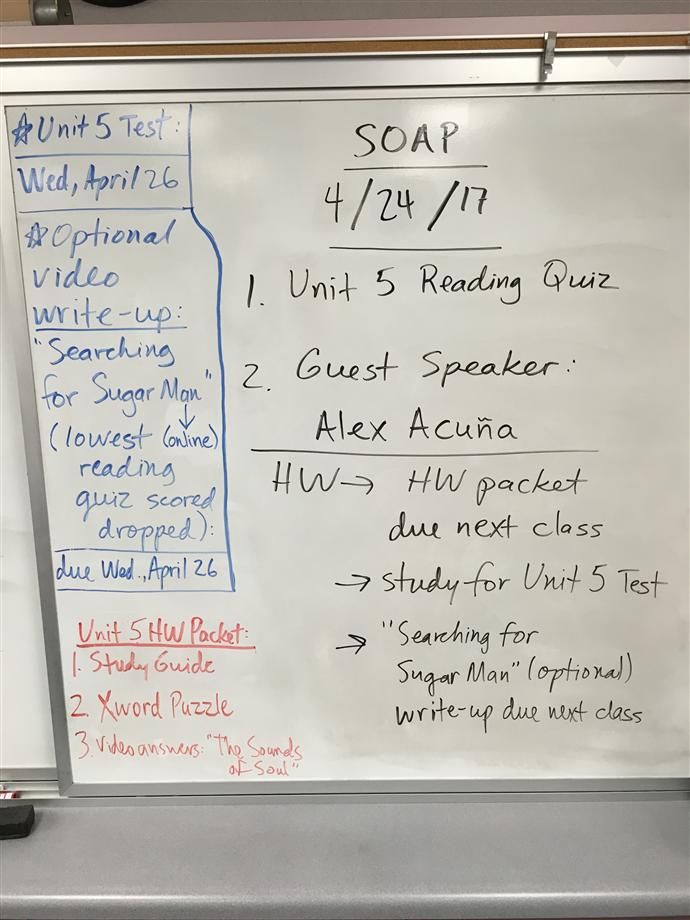 ☆Unit 5 Test:
Wed, April 26
☆Optional
video
write-up:
"Searching
for Sugar Man"
(lowest (online)
reading
quiz scored
dropped):
due Wed., April 26
Unit 5 HW Packet:
1. Study Guide
2. Xword Puzzle
3. Video answers: "The Sounds
of Soul"
SOAP
4/24/17
1. Unit 5 Reading Quiz
2. Guest Speaker:
Alex Acuña
HW→ HW packet
due next class
→ study for Unit 5 Test
→ "Searching for
Sugar Man" (optional)
write-up due next class